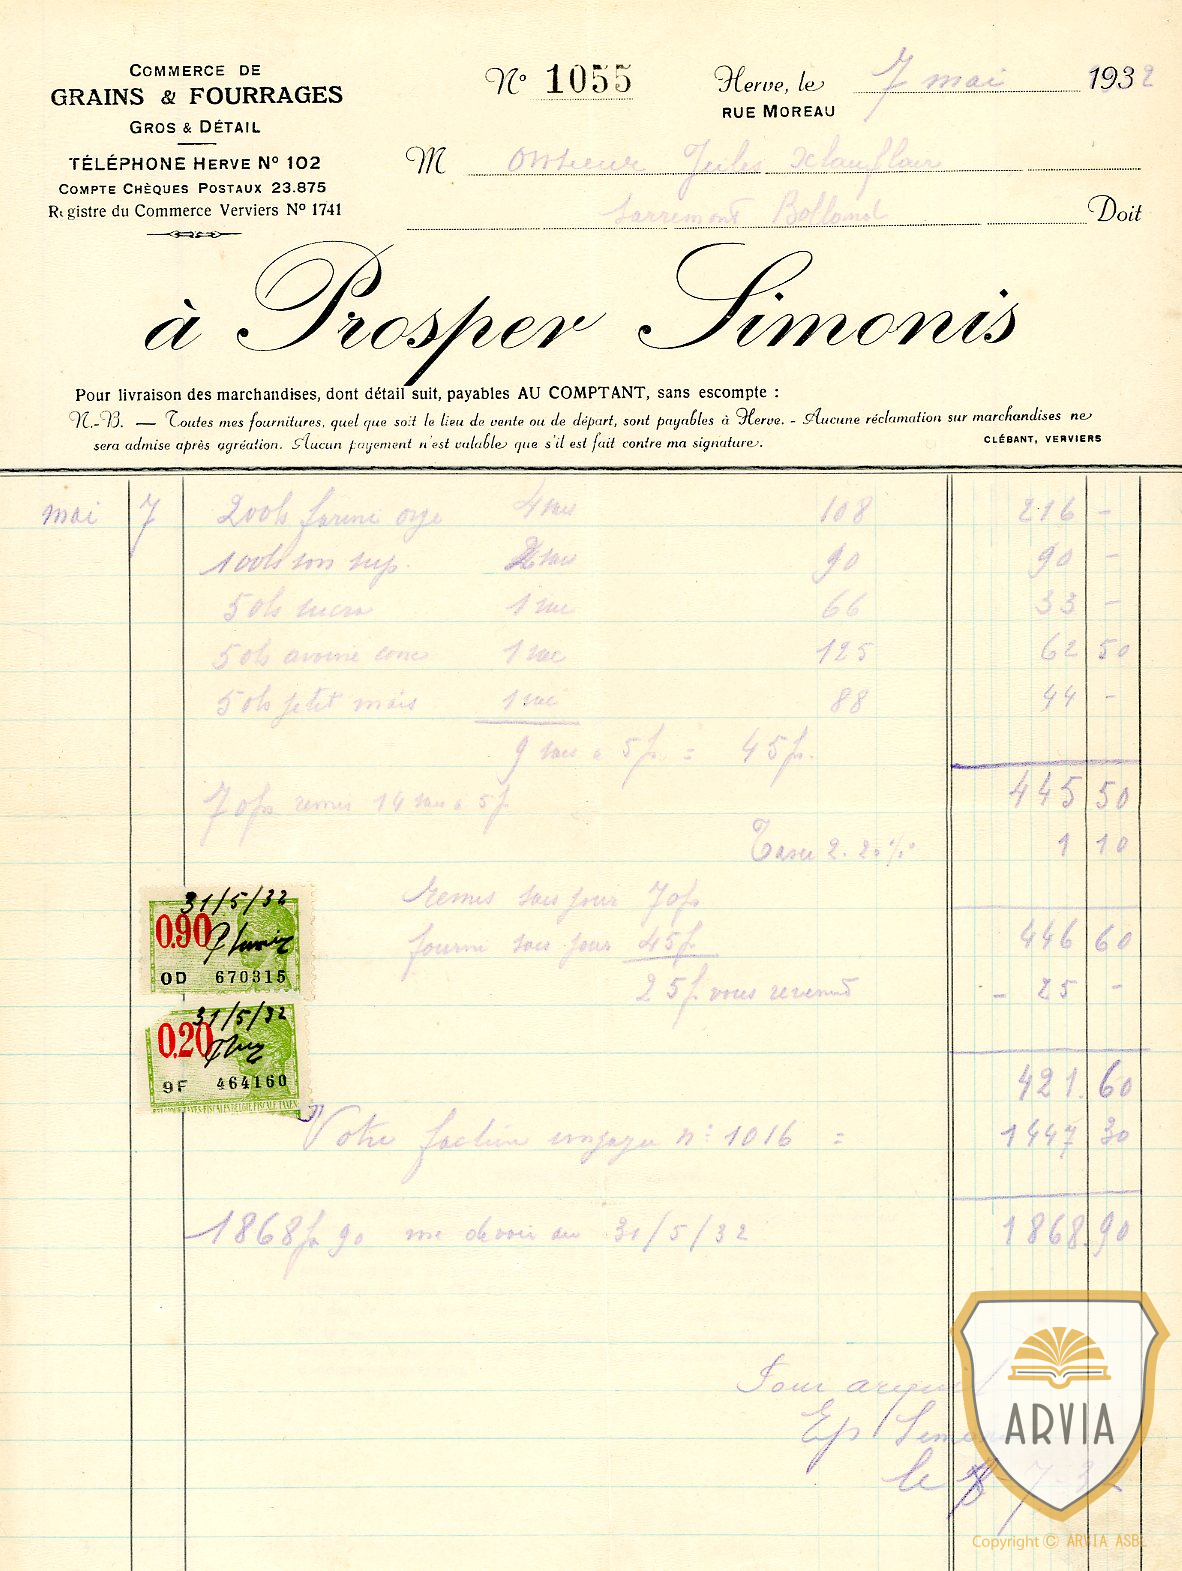 COMMERCE DE
GRAINS & FOURRAGES
GROS & DÉTAIL
TÉLÉPHONE HERVE Nº 102
COMPTE CHÈQUES POSTAUX 23.875
Registre du Commerce Verviers Nº 1741
Nº 1055
Herve, le 7 mai 1932
RUE MOREAU
M onsieur Jules
Bolland Doit
à Prosper Simonis
Pour livraison des marchandises, dont détail suit, payables AU COMPTANT, sans escompte :
N.-B. — Toutes mes fournitures, quel que soit le lieu de vente ou de départ, sont payables à Herve. - Aucune réclamation sur marchandises ne
sera admise après agréation. Aucun payement n'est valable que s'il est fait contre ma signature.
CLÉBANT, VERVIERS
mai 7 200ks farine orge 4 sacs 108 216 -
100ks son sup. 2 sacs 90 90 -
50ks sucre 1 sac 66 33 -
50ks avoine conc 1 sac 125 62 50
50ks petit mais 1 sac 88 44 -
9 sacs a 5f. = 45f.
445 50
70f remis 14 sacs a 5f
Taxe 2.20% 1 10
remis sacs pour 70f
fourni sacs pour 45f
446 60
25f. vous revenant - 25 -
421.60
31/5/32
0.90
OD 670315
31/5/32
0.20
9F 464160
Votre facture nº 1016 = 1447 30
1868f 90 me devoir au 31/5/32 1868.90
Pour acquit
le 7-32
ARVIA
Copyright © ARVIA ASBL